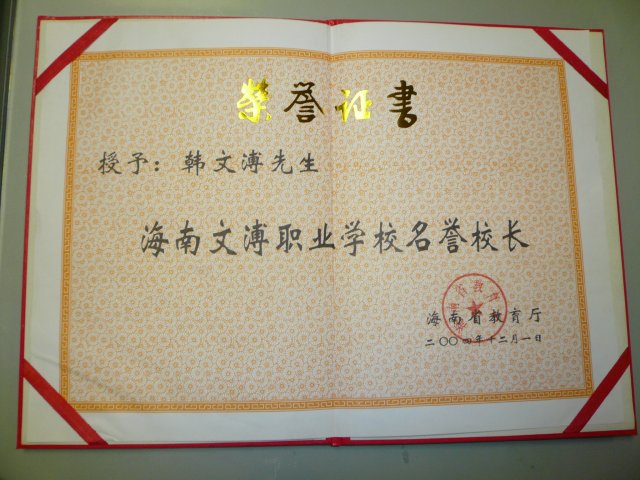 荣誉证书
授予：韩文溥先生
海南文溥职业学校名誉校长
海南省教育厅
二〇〇四年十二月一日